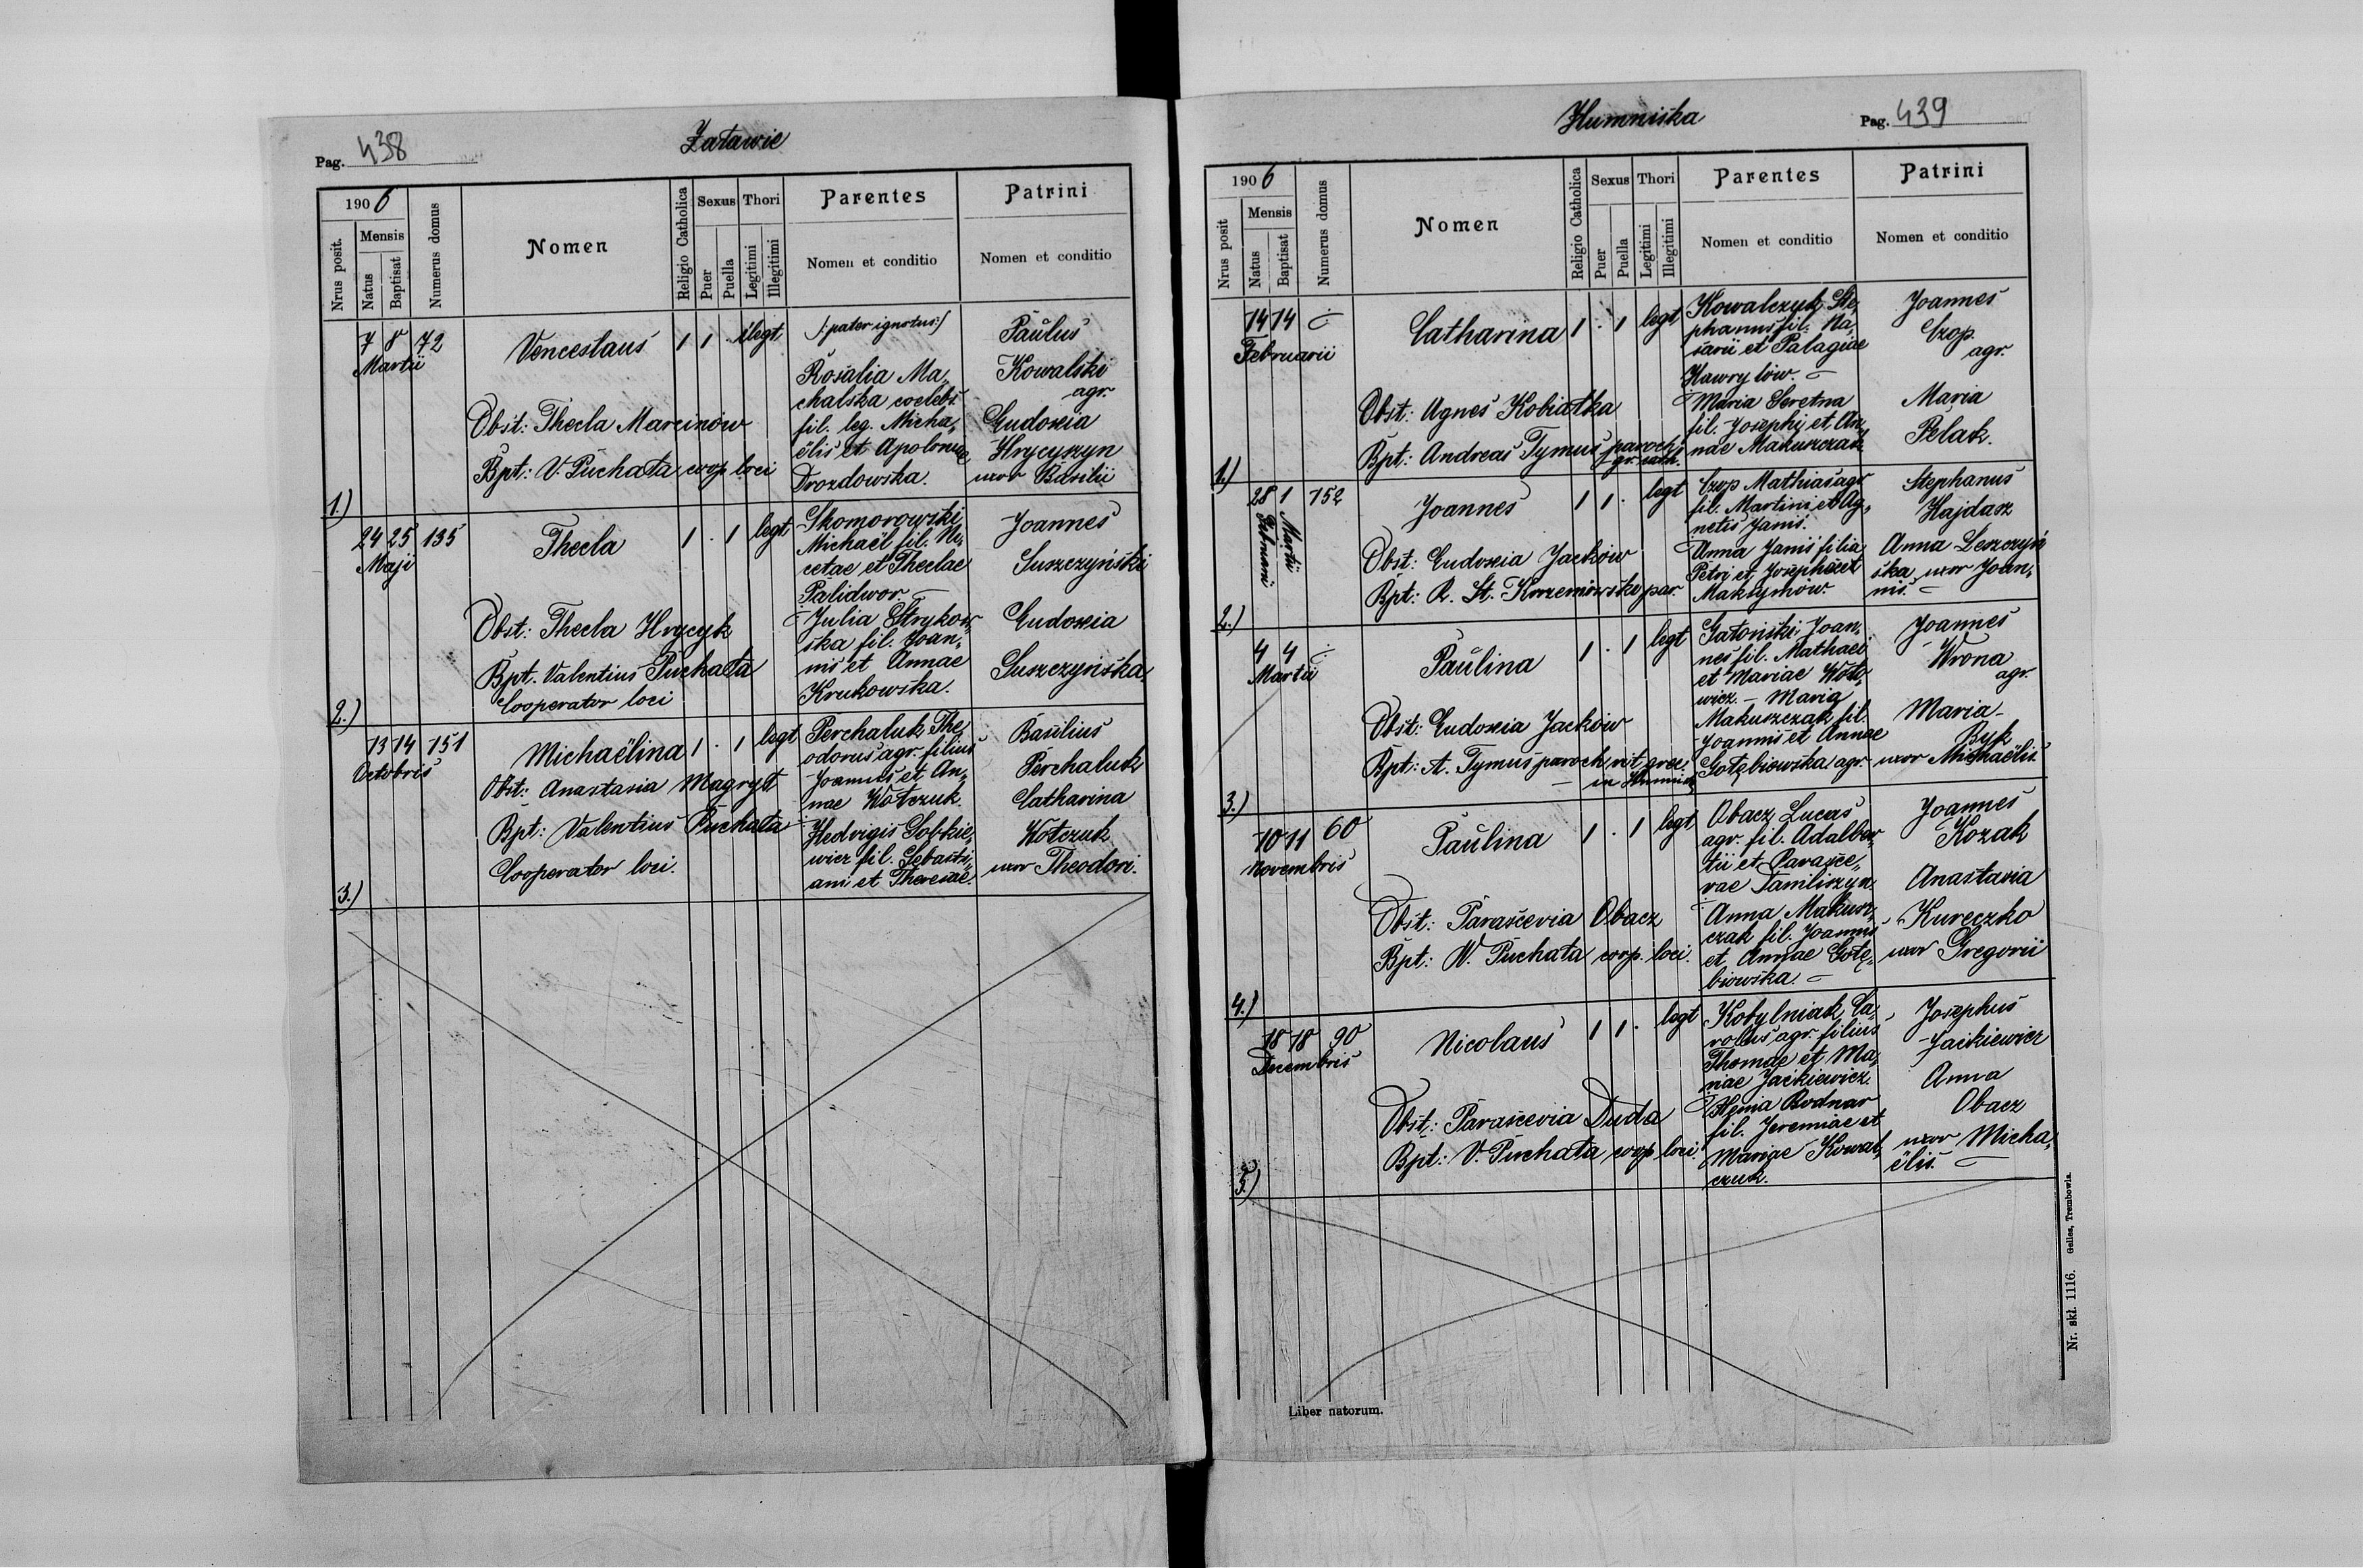 Pag. 438
Załawie
1906
Nrus posit.
Mensis
Natus
Baptisat
Numerus domus
Nomen
Religio Catholica
Sexus
Puer
Puella
Thori
Legitimi
Illegitimi
Parentes
Nomen et conditio
Patrini
Nomen et conditio
1.)
7 8 72
Martii
Venceslaus 1 1 . illegt
Obst: Thecla Marcinów
Bpt: V. Puchała coop loci
/: pater ignotus :/
Rosalia Ma„
chalska coelebs.
fil. leg. Micha„
ëlis et Apoloniae
Drozdowska.
Paulus
Kowalski
agr.
Eudoxia
Hrycyszyn
uxor Basilii
2.)
24 25 135
Maji
Thecla 1 . 1 legt
Obst: Thecla Hrycyk
Bpt. Valentius Puchała
Cooperator loci
Skomorowski
Michaël fil. Ni„
cetae et Theclae
Palidwor. —
Julia Strykow„
ska fil. Joan„
nis et Annae
Krukowska.
Joannes
Suszczyński
Eudoxia
Suszczyńska
3.)
13 14 151
Octobris
Michaëlina 1 . 1 legt
Obst: Anastasia Magryt
Bpt: Valentius Puchała
Cooperator loci.
Perchaluk The„
odorus agr. filius
Joannis et An„
nae Wołczuk.
Hedvigis Sobkie„
wicz fil. Sebasti„
ani et Theresae.
Basilius
Perchaluk
Catharina
Wołczuk
uxor Theodori.
Humniska
Pag. 439
1906
Nrus posit
Mensis
Natus
Baptisat
Numerus domus
Nomen
Religio Catholica
Sexus
Puer
Puella
Thori
Legitimi
Illegitimi
Parentes
Nomen et conditio
Patrini
Nomen et conditio
1.)
14 14 ÷
Februarii
Catharina 1 . 1 legt
Obst: Agnes Kobiałka
Bpt: Andreas Tymus paroch.
gr. cath.
Kowalczyk Ste„
phanus fil. Na„
sarii et Palagiae
Hawryłów. —
Maria Seretna
fil. Josephi et An„
nae Makuszczak
Joannes
Czop
agr.
Maria
Pelak.
2.)
28 1 152
Februarii
Martii
Joannes 1 1 . legt
Obst: Eudoxia Jacków
Bpt: R. St. Krzemiowski par.
Czop Mathias agr
fil. Martini et Ag„
netis Janis.
Anna Janis filia
Petri et Josephae
Maksymów.
Stephanus
Hajdasz
Anna Leszczyń
ska uxor Joan„
nis. —
3.)
4 4 ÷
Martii
Paulina 1 . 1 legt
Obst: Eudoxia Jacków
Bpt: A. Tymus paroch. rit. graec.
in Humnisk
Gatoński Joan„
nes fil. Mathaei
et Mariae Woło„
wicz. — Maria
Makuszczak fil.
Joannis et Annae
Gołębiowska agr.
Joannes
Wrona
agr.
Maria
Byk
uxor Michaëlis.
4.)
10 11 60
Novembris
Paulina 1 . 1 legt
Obst: Parascevia Obacz
Bpt: V. Puchała coop. loci.
Obacz Lucas
agr. fil. Adalber„
tii et Parasce„
vae Tamiliszyn.
Anna Makusz„
czak fil. Joannis
et Annae Gołę„
biowska. —
Joannes
Kozak
Anastasia
Kureczko
uxor Gregorii
5.)
18 18 90
Decembris
Nicolaus 1 1 . legt
Obst: Parascevia Duda
Bpt: V. Puchała coop loci.
Kobylniak Ca„
rolus agr. filius
Thomae et Ma„
riae Jackiewicz.
Bodnar
fil. Jeremiae et
Mariae Kowal„
czuk.
Josephus
Jackiewicz
Anna
Obacz
uxor Micha„
ëlis. —
Liber natorum.
Nr. skł. 1116. Gelles, Trembowla.